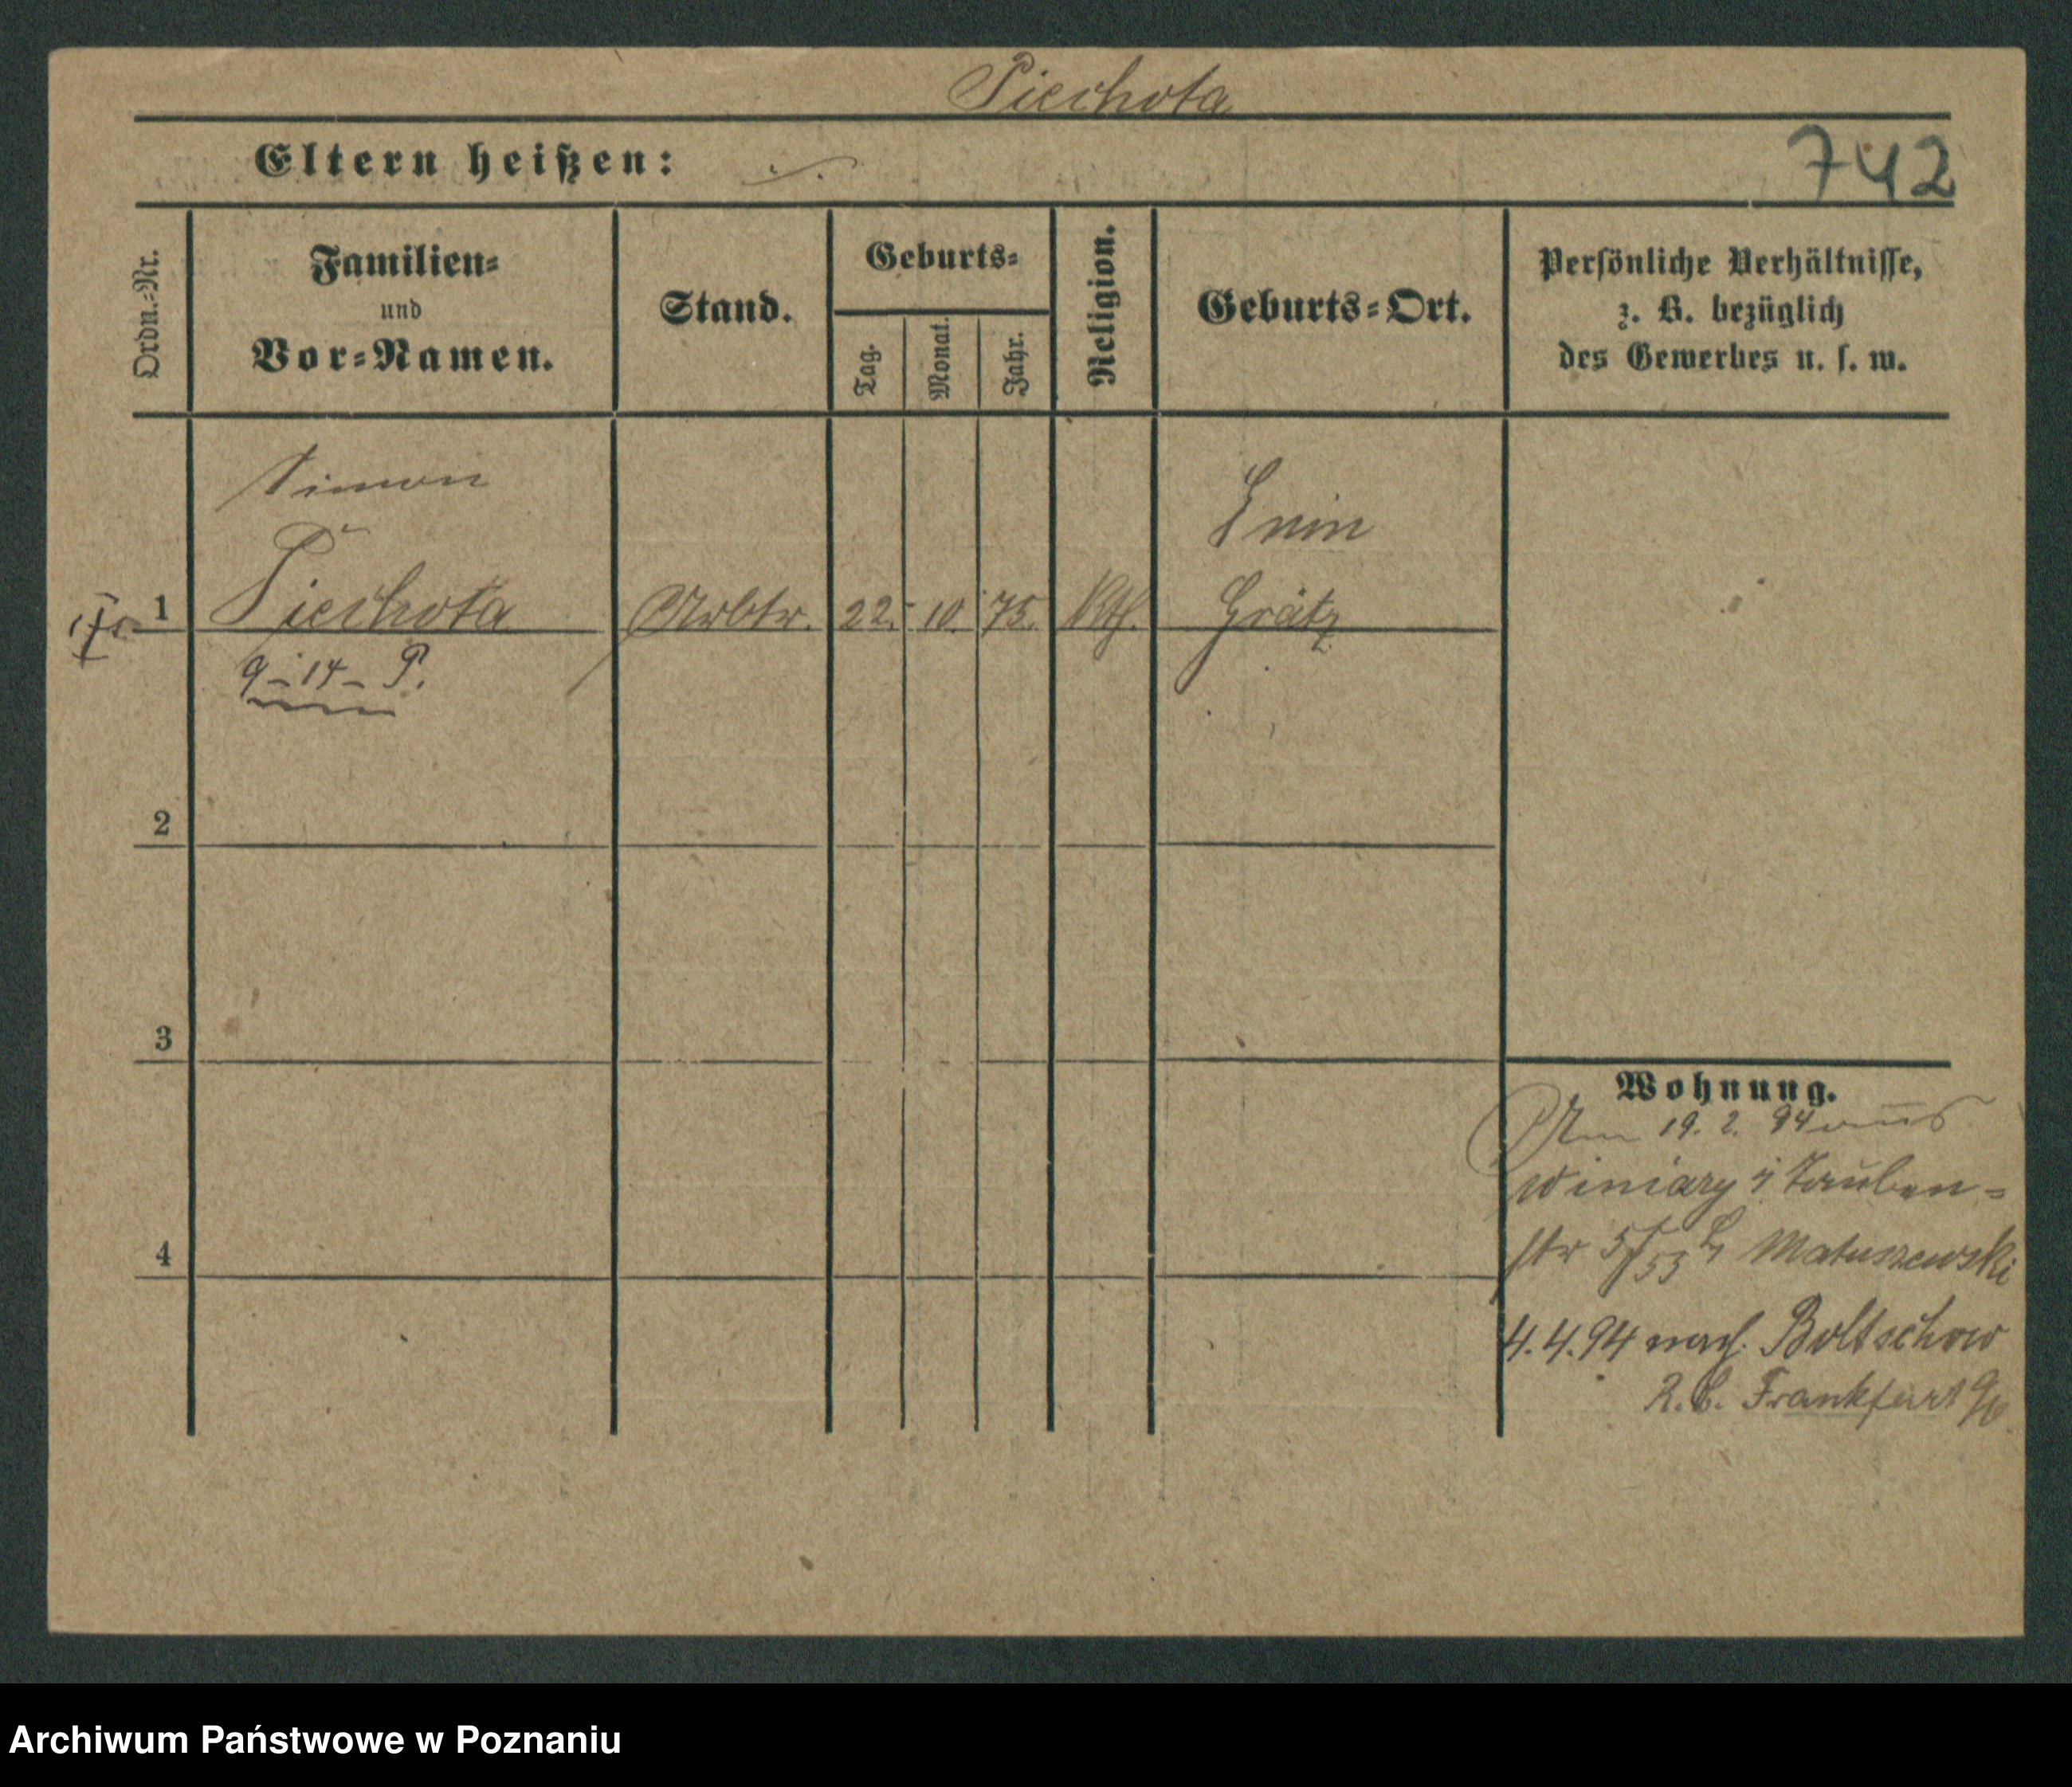 Piechota
Eltern heißen:
742
Ordn.-Nr.
Familien-
und
Vor-Namen.
Stand.
Geburts-
Tag.
Monat.
Jahr.
Religion.
Geburts-Ort.
Persönliche Verhältnisse,
z. B. bezüglich
des Gewerbes u. s. w.
Simon
1 Piechota Arbtr. 22. 10. 75. Kth. Grätz
9-14-P.
2
3
4
Wohnung.
Am 19. 2. 94 aus
Winiary Tauben-
str 5/53 Matuszewski
4.4.94 nach Boltschow
R.B. Frankfurt
Archiwum Państwowe w Poznaniu